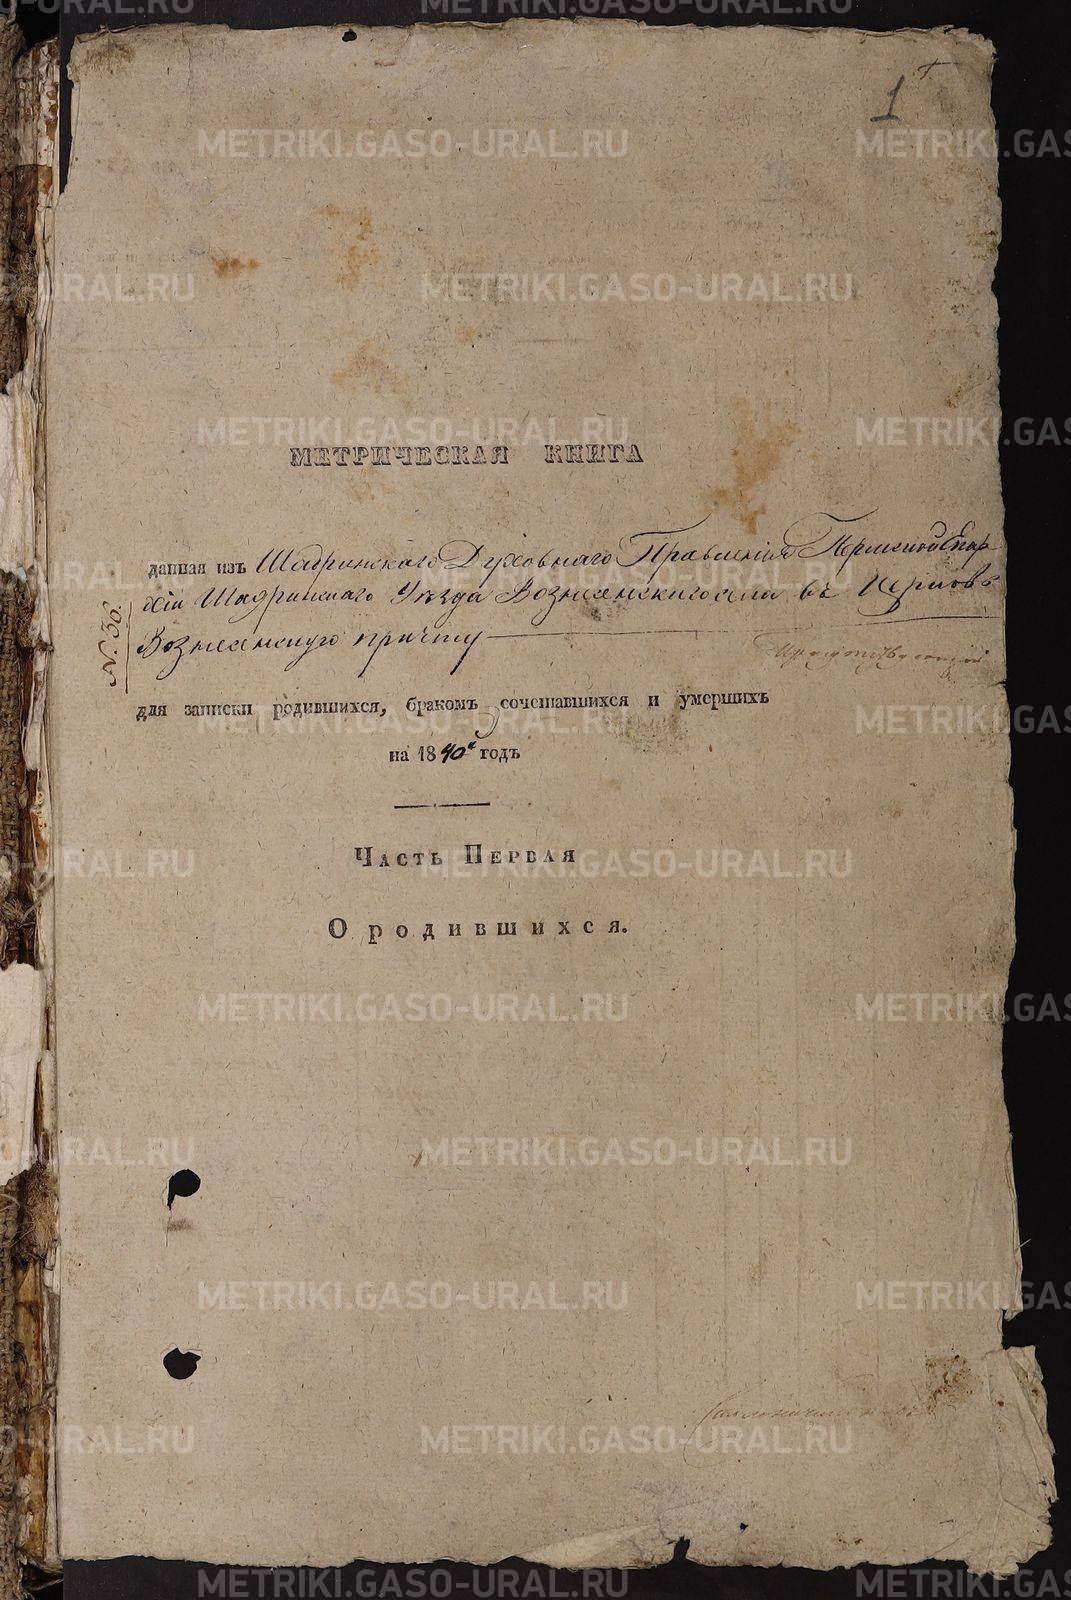 1
МЕТРИЧЕСКАЯ КНИГА
данная изъ Шадринскаго Духовнаго Правленія Пермской Епар-
хіи Шадринскаго Уѣзда Вознесенскаго села въ Церковь
Вознесенскую причту
№ 36.
для записки родившихся, бракомъ сочетавшихся и умершихъ
на 1840й годъ
Часть Первая
О родившихся.
METRIKI.GASO-URAL.RU